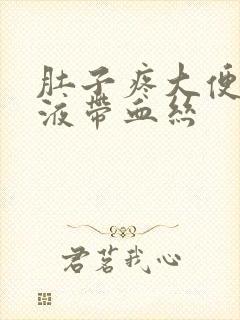 肚子疼大便
液帶血絲
君茗我心